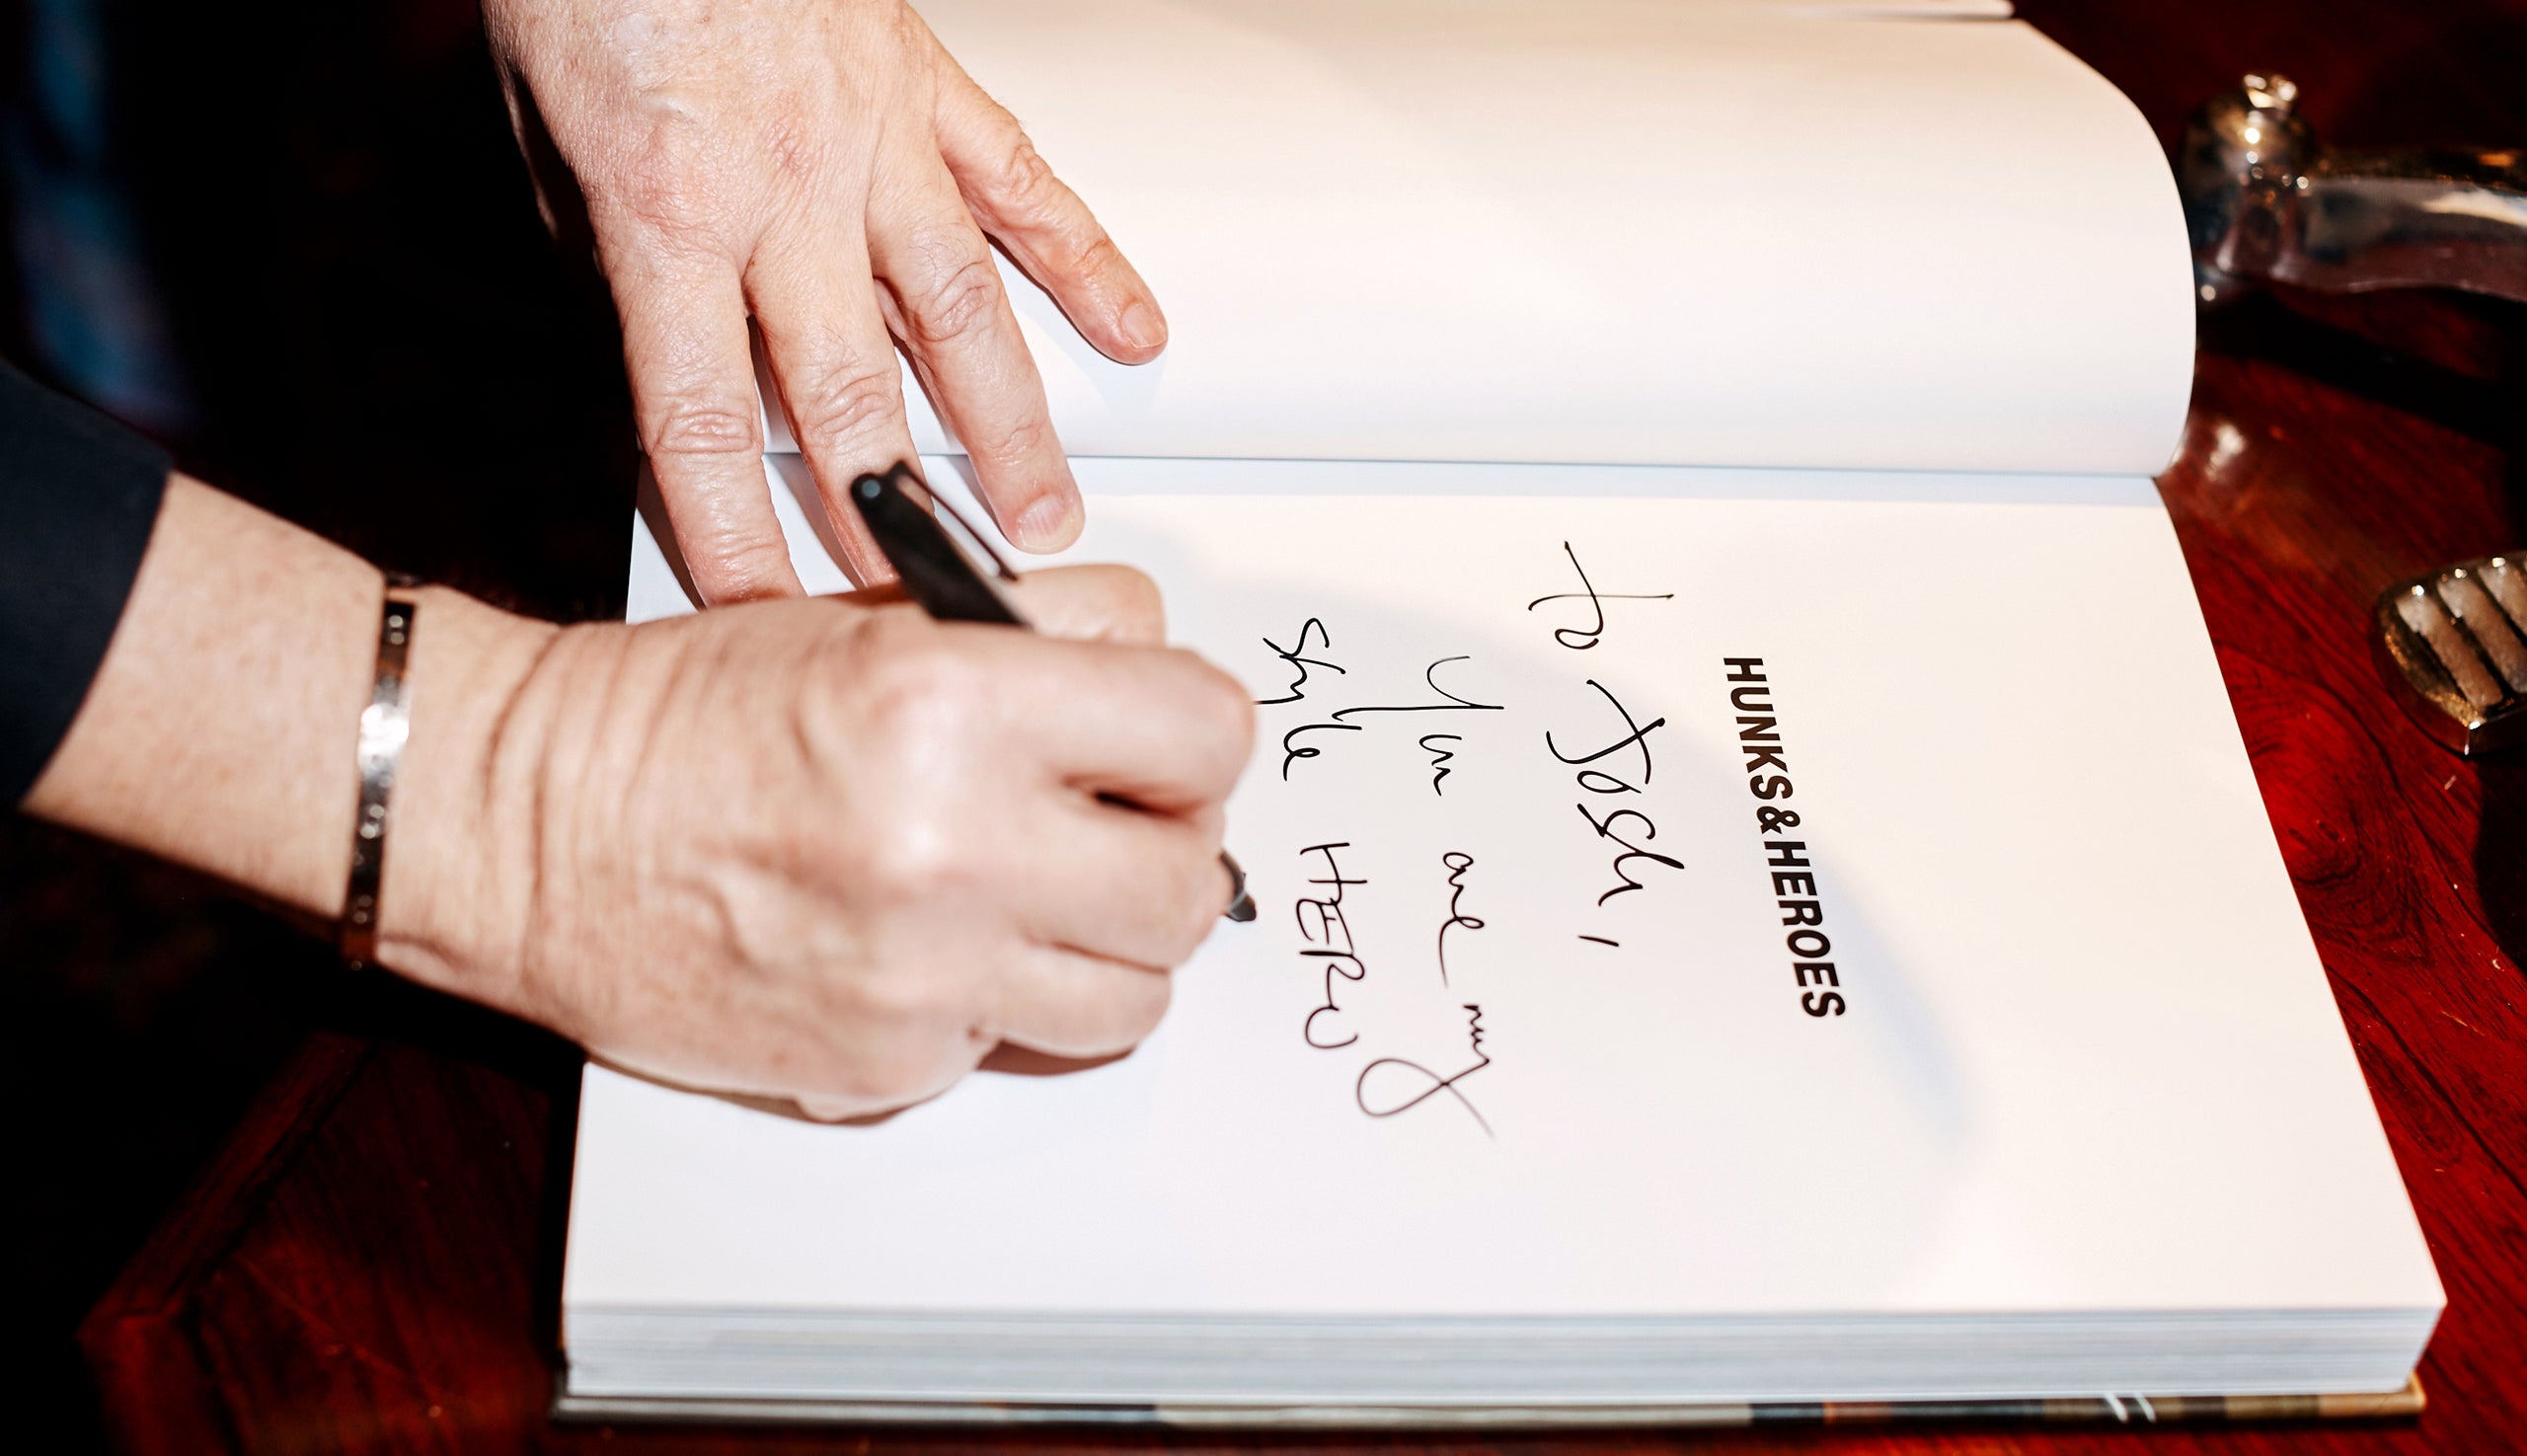 HUNKS & HEROES
to Josh,
You are my
style HERO